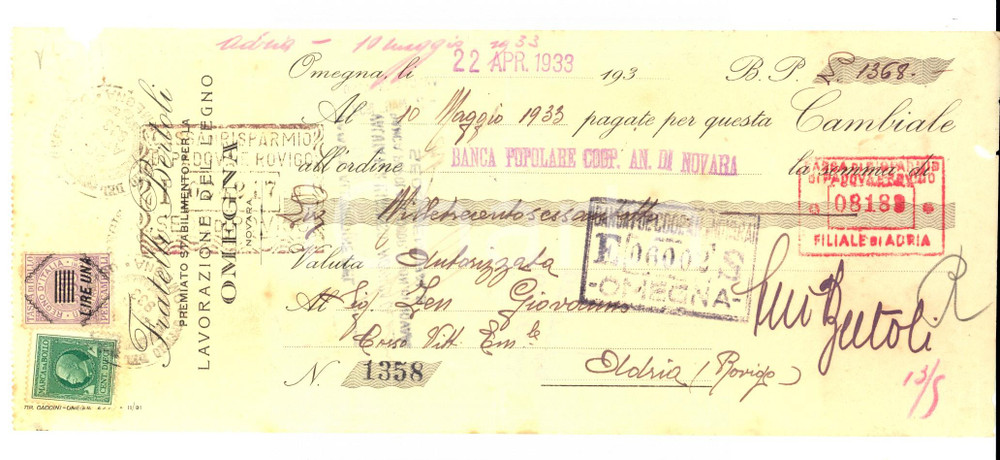 adria - 10 maggio 1933
Omegna, li 22 APR. 1933 193 B. P. £ 1368.-
Al 10 Maggio 1933 pagate per questa Cambiale
all'ordine BANCA POPOLARE COOP. AN. DI NOVARA la somma di
Lire Milletrecentosessantotto
Valuta Autorizzata
Al Sig. Zen Giovanni
Corso Vitt. Em.le
Adria (Rovigo)
N. 1358
Fratelli Bertoli
PREMIATO STABILIMENTO PER LA
LAVORAZIONE DEL LEGNO
OMEGNA
NOVARA
RISPARMIO
PADOVA E ROVIGO
E 06002
OMEGNA
CASSA DI RISPARMIO
DI PADOVA E ROVIGO
08188
FILIALE DI ADRIA
Bertoli
R
13/5
REGNO D'ITALIA
LIRE UNA
MARCA DA BOLLO
CENT. DIECI